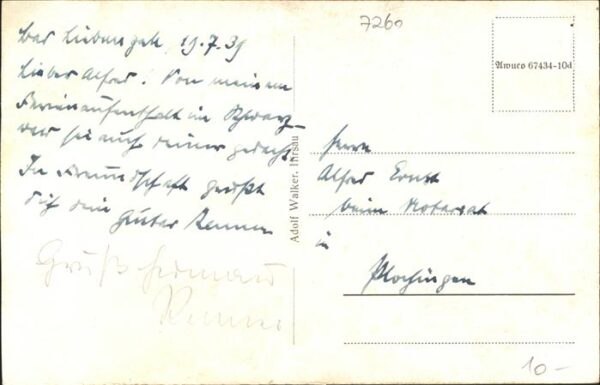 7260
Bad Liebenzell, 19.7.39
Lieber Alfred. Von meinem
Ferienaufenthalt im Schwarz-
sei auch deiner gedacht
In Freundschaft grüßt
Dich dein Günter
Gruß Hermann
Awuco 67434-10d
Adolf Walker, Hirsau
Herrn
Alfred Ernst
beim Notariat
in
Plochingen
10-